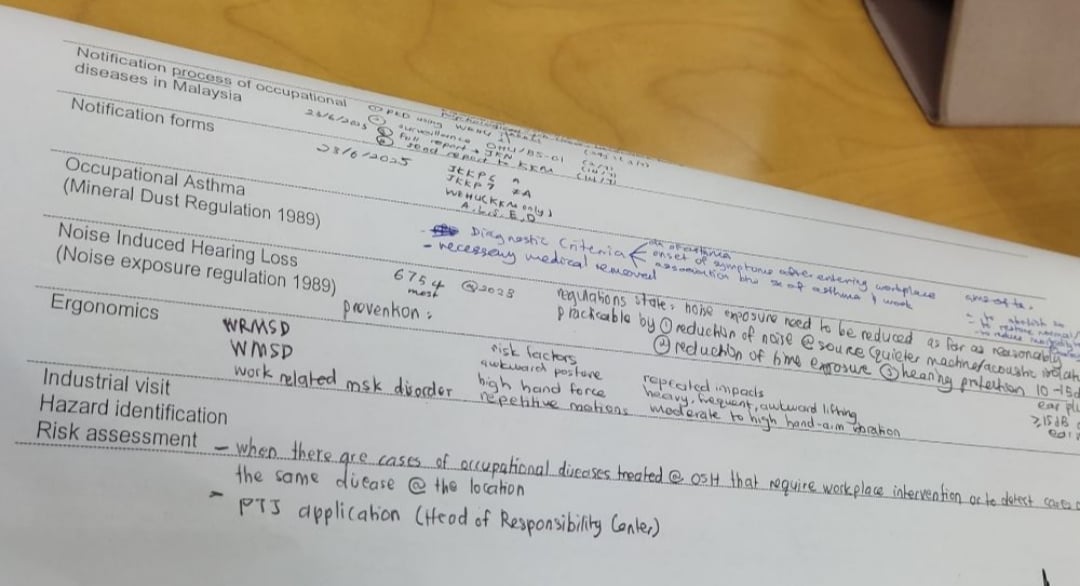 Notification process of occupational
diseases in Malaysia
23/6/2025
① PKD using WEHU
② surveillance OHU/BS-01
③ Full report → JKN
④ send report to KKM
Notification forms
23/6/2025
JKKP 6
JKKP 7
WEHU (KKM only)
A, L, S, E, D
Occupational Asthma
(Mineral Dust Regulation 1989)
- Diagnostic Criteria
onset of symptoms after entering workplace
association btw sx of asthma & work
- necessary medical removed
Noise Induced Hearing Loss
(Noise exposure regulation 1989)
6754 @2023
most
prevention :
regulations state: noise exposure need to be reduced as far as reasonably
practicable by ① reduction of noise @ source (quieter machine/acoustic
② reduction of time exposure ③ hearing protection 10-15d
ear
≥15dB
Ergonomics
WRMSD
WMSD
work related msk disorder
risk factors
awkward posture
high hand force
repetitive motions
repeated impacts
heavy, frequent, awkward lifting
moderate to high hand-arm vibration
Industrial visit
Hazard identification
Risk assessment
- when there are cases of occupational diseases treated @ OSH that require workplace intervention or to detect cases
the same disease @ the location
- PTJ application (Head of Responsibility Center)